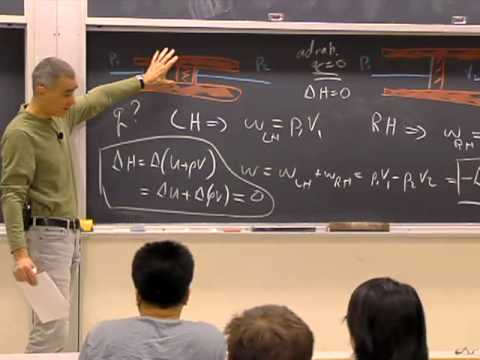 adiab.
q = 0
P₁ P₂ P₁ V₂
ΔH=0
q? LH ⇒ w_LH = P₁V₁ RH ⇒ w_RH
ΔH = Δ(u+pV)
= Δu + Δ(pV) = 0
w = w_LH + w_RH = P₁V₁ - P₂V₂ = -Δ